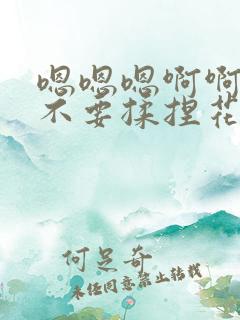 嗯嗯嗯啊啊
不要揉捏花
何足奇
未经同意禁止转载